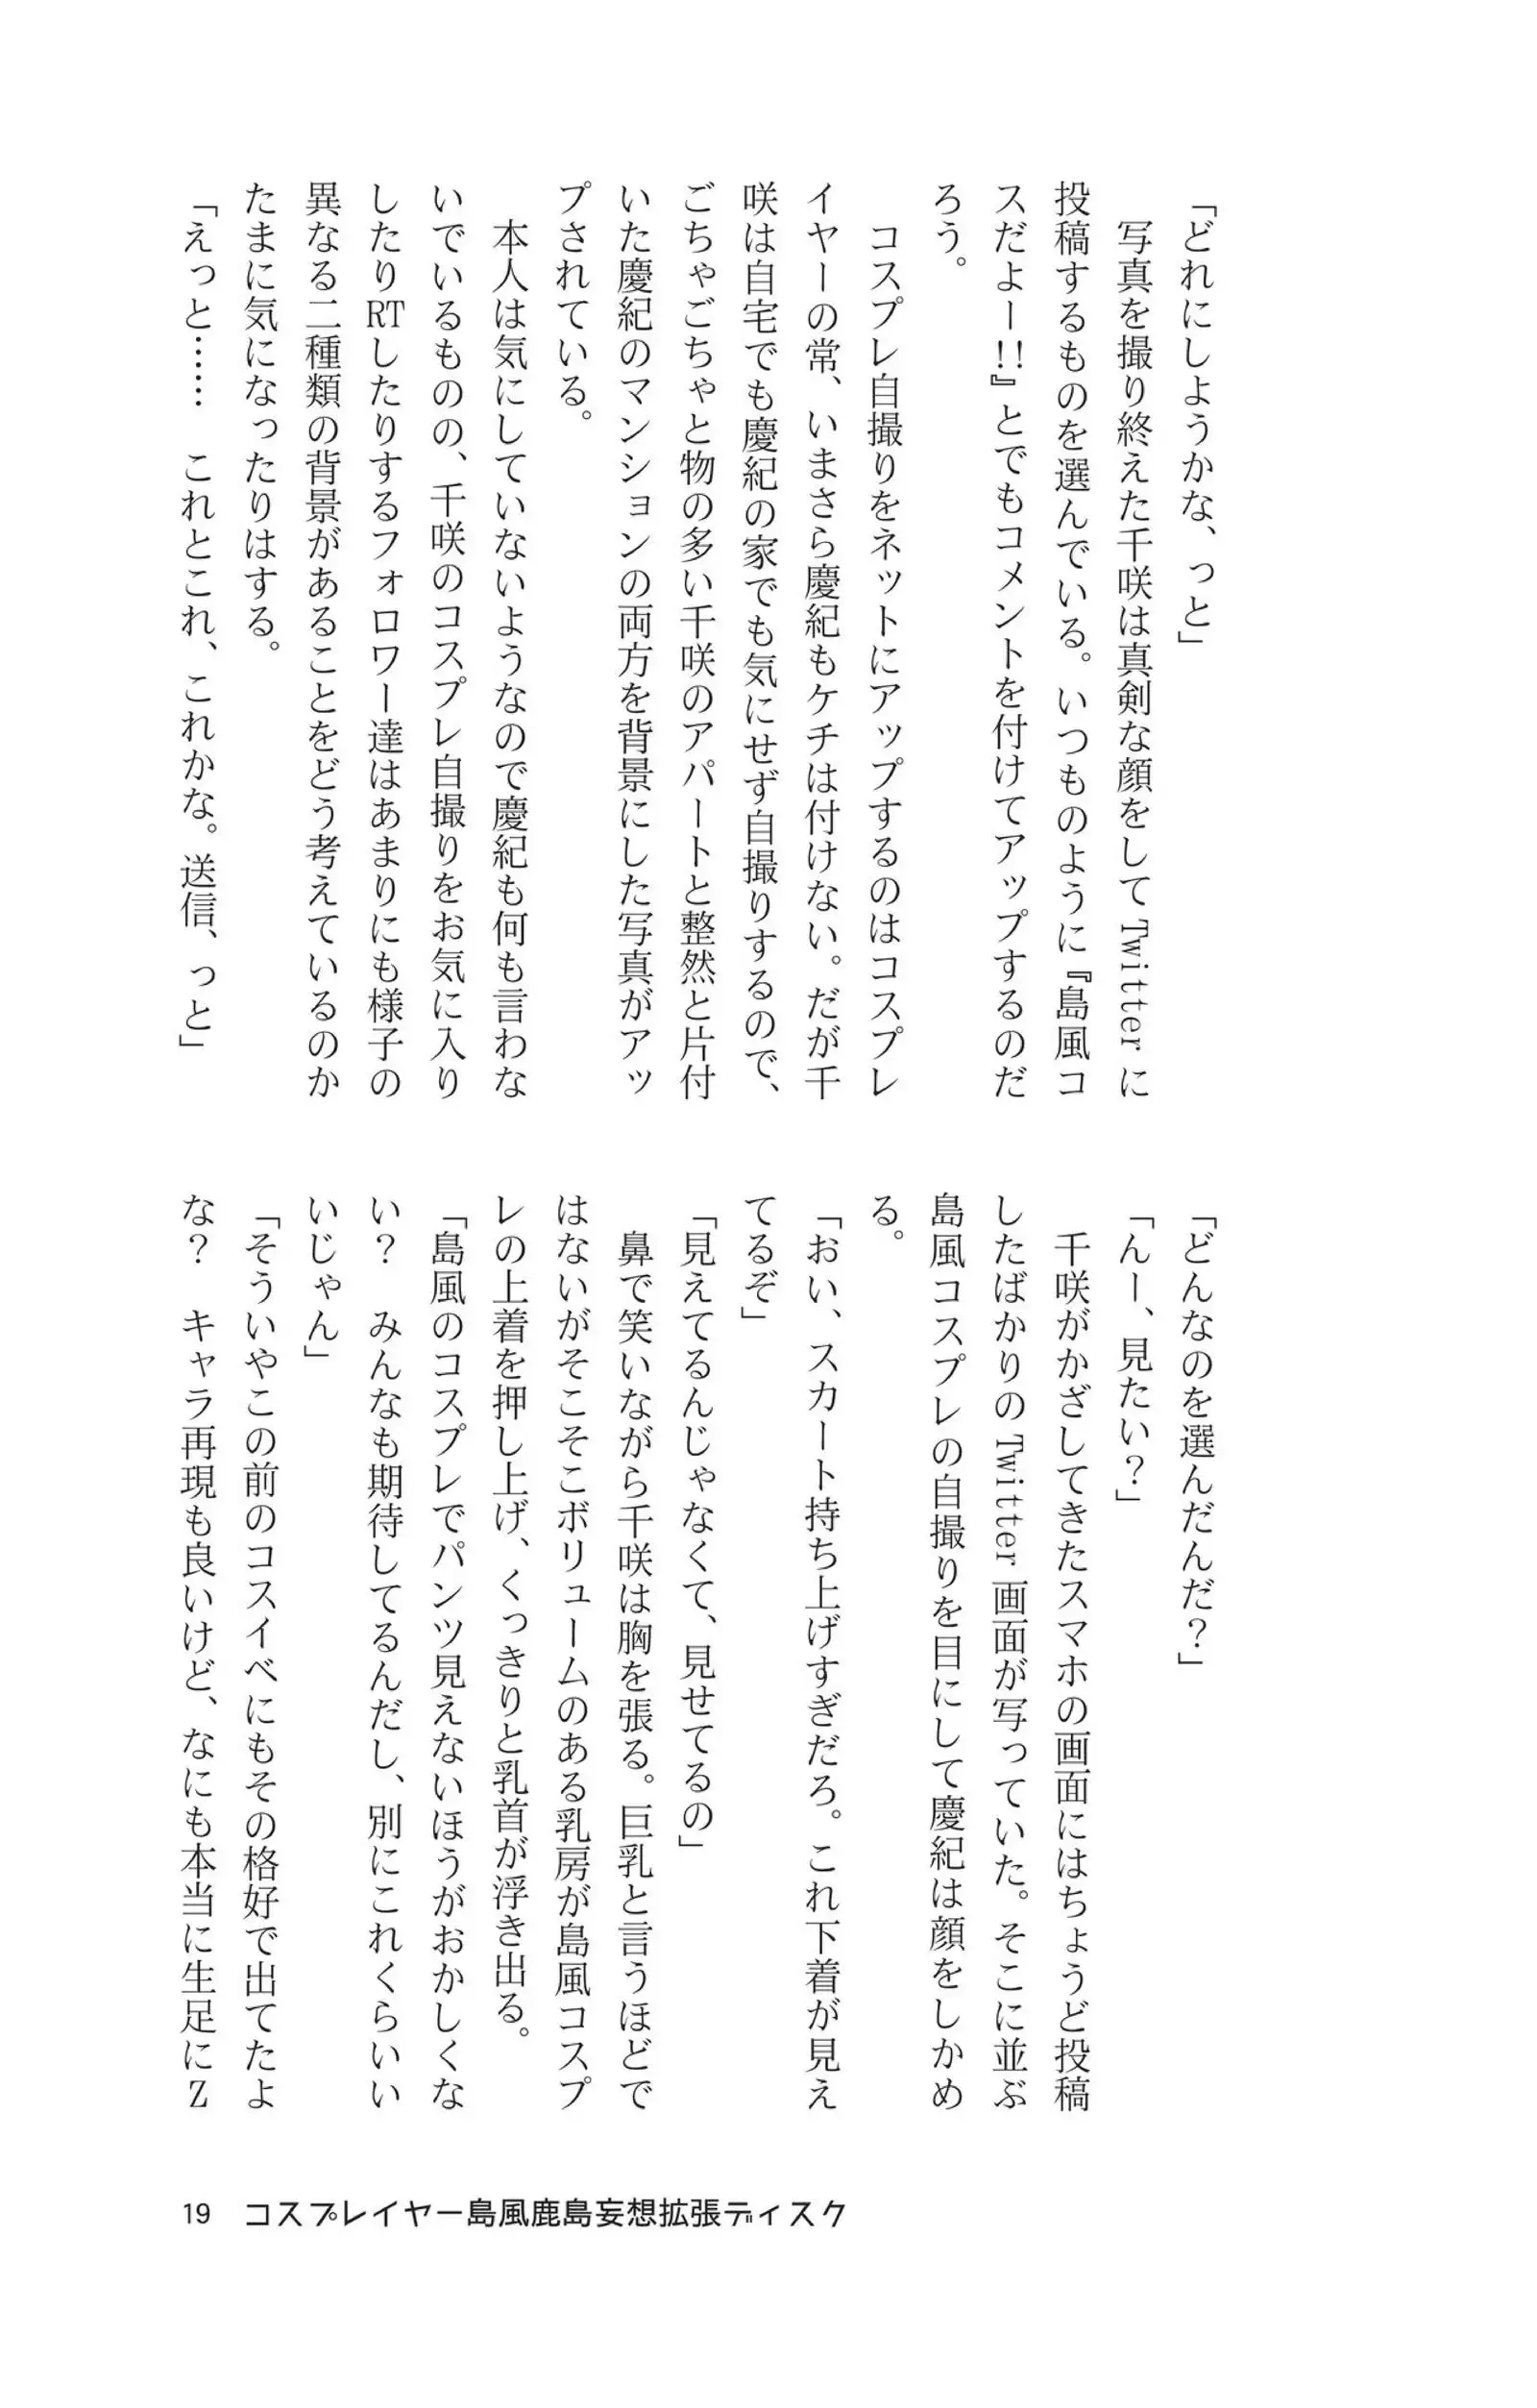 「どれにしようかな、っと」
　写真を撮り終えた千咲は真剣な顔をして Twitter に
投稿するものを選んでいる。いつものように『島風コ
スだよー!!』とでもコメントを付けてアップするのだ
ろう。
　コスプレ自撮りをネットにアップするのはコスプレ
イヤーの常、いまさら慶紀もケチは付けない。だが千
咲は自宅でも慶紀の家でも気にせず自撮りするので、
ごちゃごちゃと物の多い千咲のアパートと整然と片付
いた慶紀のマンションの両方を背景にした写真がアッ
プされている。
　本人は気にしていないようなので慶紀も何も言わな
いでいるものの、千咲のコスプレ自撮りをお気に入り
したりRTしたりするフォロワー達はあまりにも様子の
異なる二種類の背景があることをどう考えているのか
たまに気になったりはする。
「えっと……　これとこれ、これかな。送信、っと」
「どんなのを選んだんだ？」
「んー、見たい？」
　千咲がかざしてきたスマホの画面にはちょうど投稿
したばかりの Twitter 画面が写っていた。そこに並ぶ
島風コスプレの自撮りを目にして慶紀は顔をしかめ
る。
「おい、スカート持ち上げすぎだろ。これ下着が見え
てるぞ」
「見えてるんじゃなくて、見せてるの」
　鼻で笑いながら千咲は胸を張る。巨乳と言うほどで
はないがそこそこボリュームのある乳房が島風コスプ
レの上着を押し上げ、くっきりと乳首が浮き出る。
「島風のコスプレでパンツ見えないほうがおかしくな
い？　みんなも期待してるんだし、別にこれくらいい
いじゃん」
「そういやこの前のコスイベにもその格好で出てたよ
な？　キャラ再現も良いけど、なにも本当に生足にZ
19　コスプレイヤー島風鹿島妄想拡張ディスク